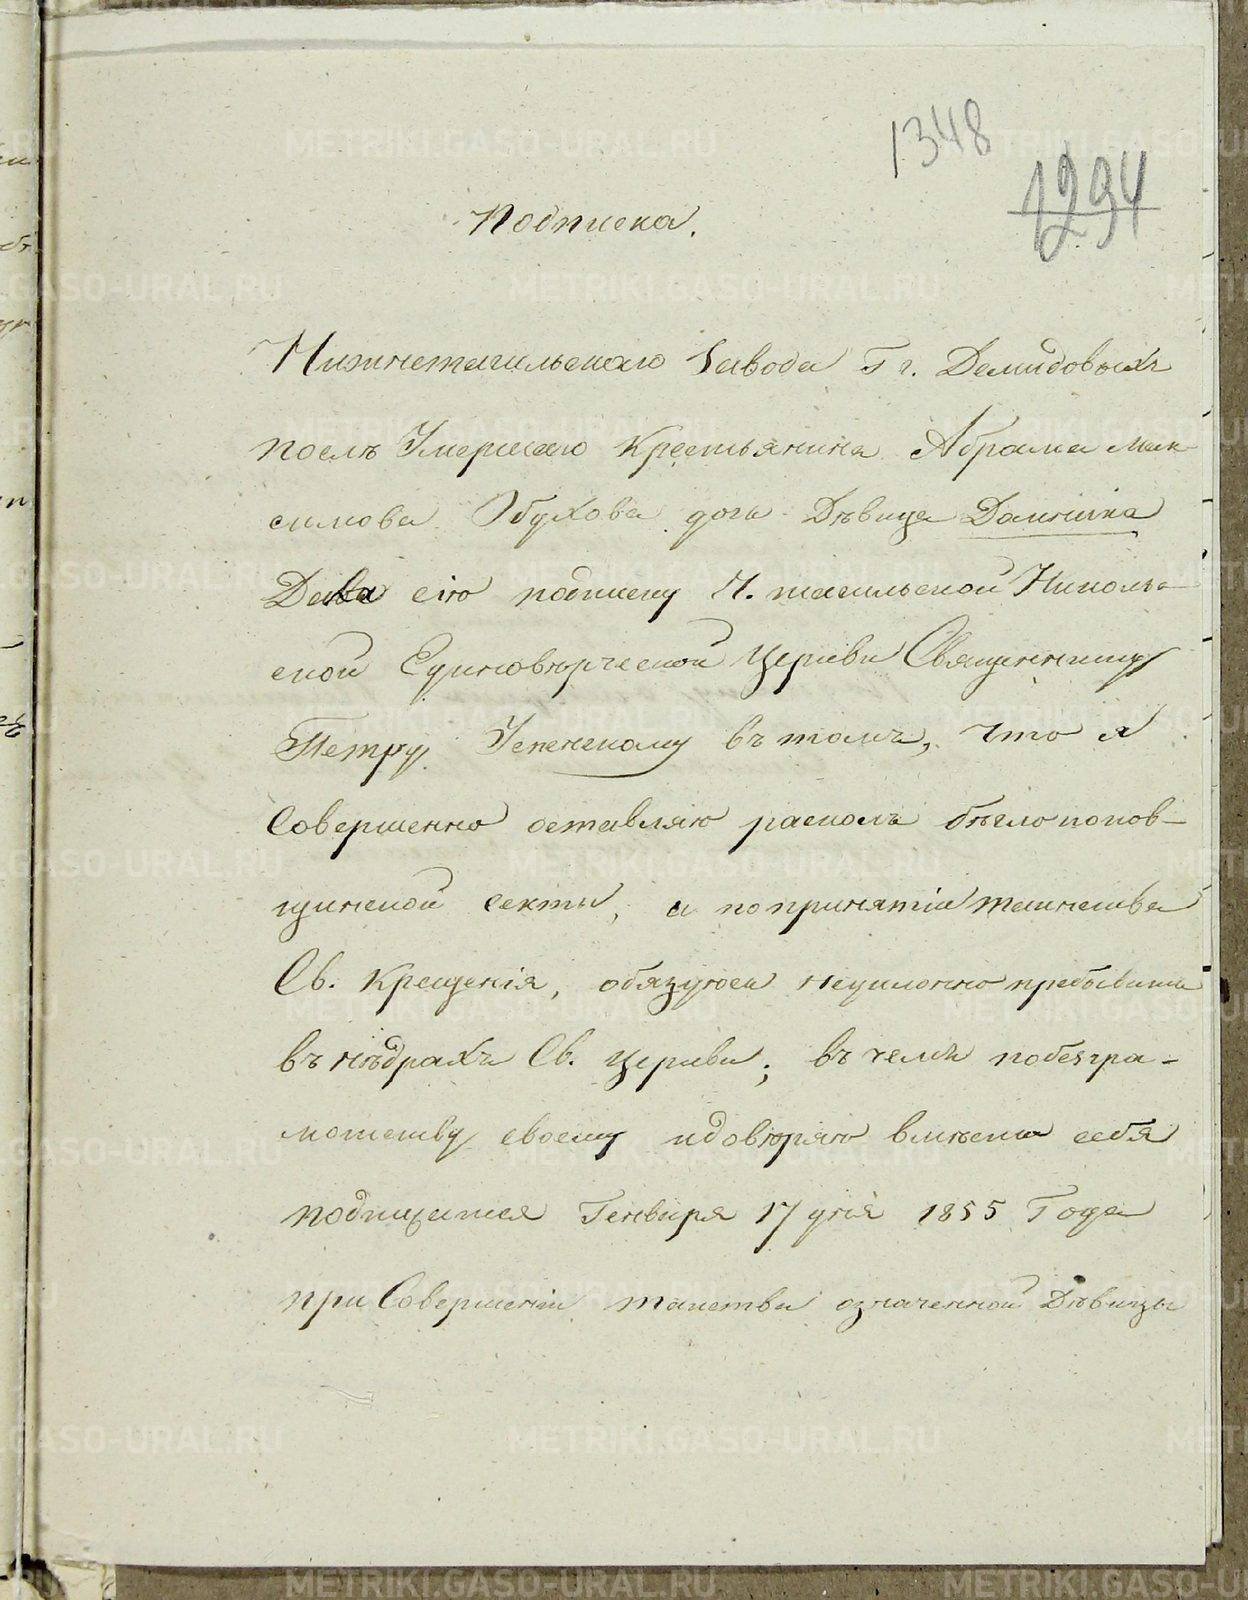 1348
1294
Подписка.
Нижнетагильскаго Завода Гг. Демидовыхъ
послѣ Умершаго Крестьянина Абрама Мак-
симова Обухова дочь Дѣвица Домника
Дала сію подписку Н. тагильской Николь-
ской Единовѣрческой Церкви Священнику
Петру Успенскому въ томъ, что я
Совершенно оставляю расколъ бѣглопопов-
щинской секты, и по принятіи таинства
Св. Крещенія, обязуюсь неуклонно пребывать
въ нѣдрахъ Св. Церкви; въ чемъ по безгра-
мотству своему и довѣряю вмѣсто себя
подписатся Генваря 17 дня 1855 Года
при Совершеніи таиства означенной Дѣвицы